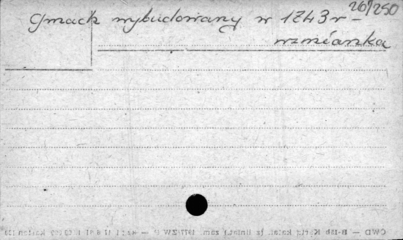 26/250
Gmach wybudowany w 1743 r –
wzmianka